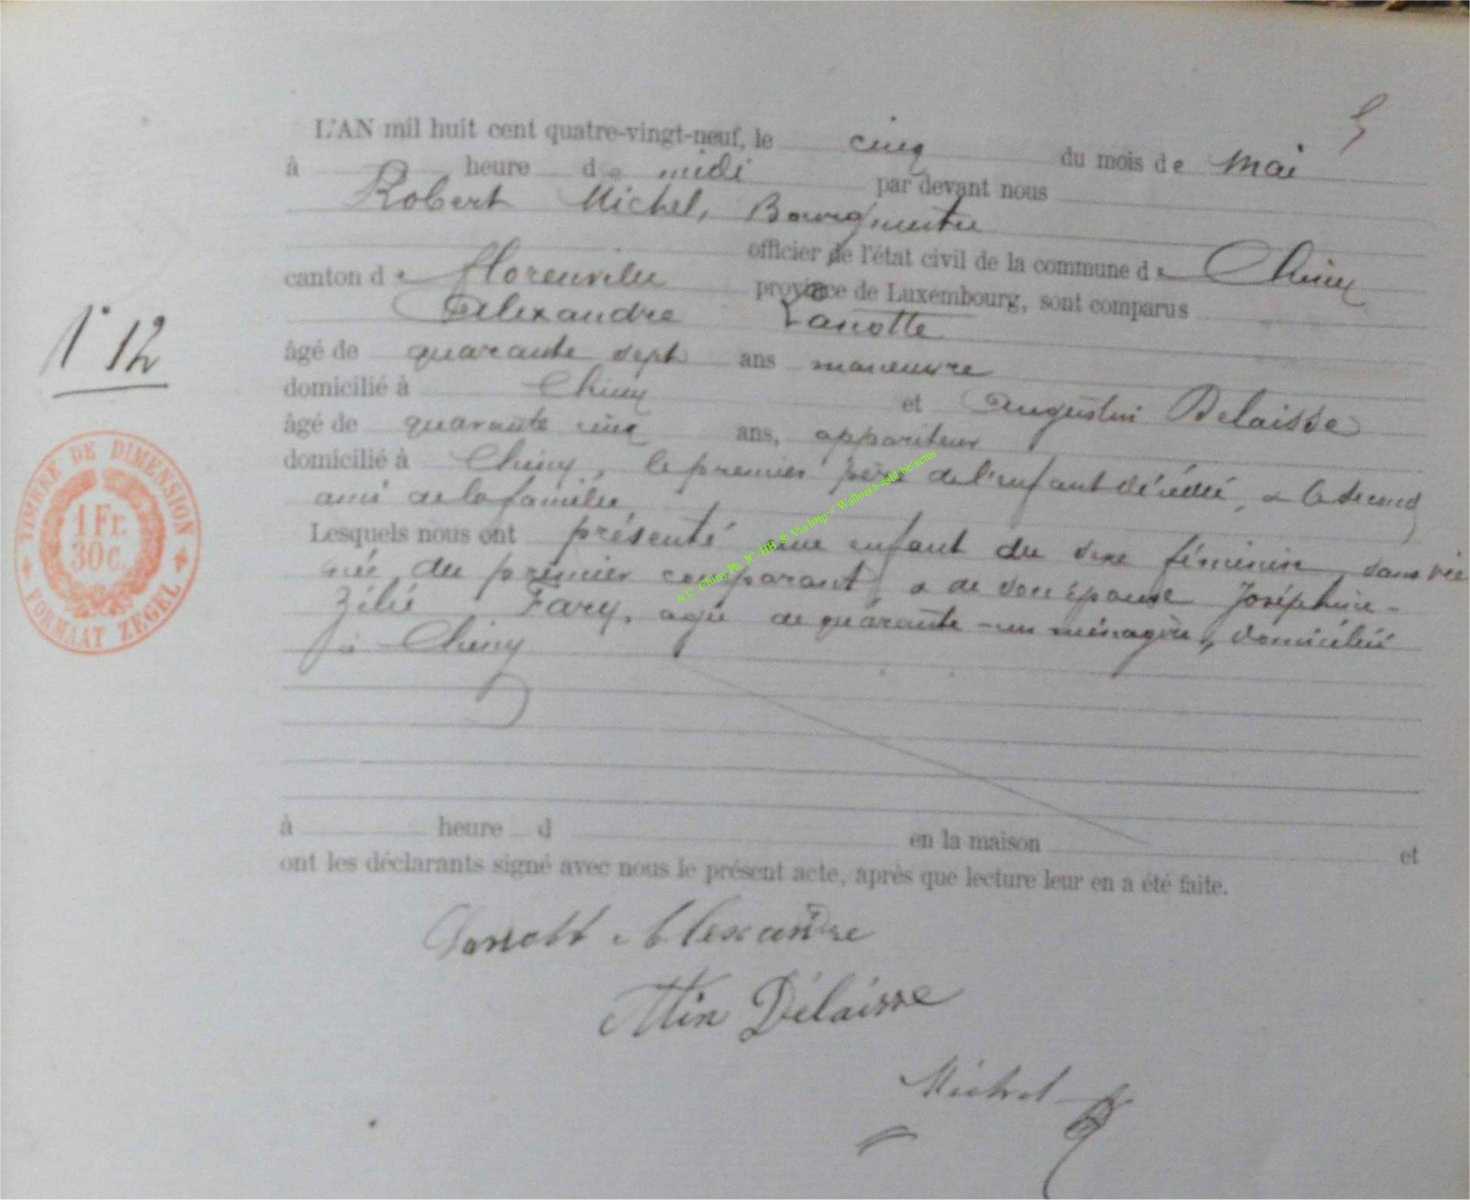 L'AN mil huit cent quatre-vingt-neuf, le cinq du mois de Mai
à heure de midi par devant nous
Robert Michel, Bourgmestre
officier de l'état civil de la commune de Chiny
canton de florenville province de Luxembourg, sont comparus
Alexandre Lanotte
âgé de quarante sept ans manœuvre
domicilié à Chiny et Augustin Delaisse
âgé de quarante cinq ans, appariteur
domicilié à Chiny, le premier père de l'enfant décédé, & le second
ami de la famille
Lesquels nous ont présenté une enfant du sexe féminin sans vie
née du premier comparant & de son épouse Joséphine-
Zélie Fary, agée de quarante-un ménagère, domiciliée
à Chiny
N° 12
TIMBRE DE DIMENSION
1 Fr.
30 c.
FORMAAT ZEGEL
à heure d en la maison et
ont les déclarants signé avec nous le présent acte, après que lecture leur en a été faite.
Lanott Alexandre
Atin Délaisse
Michel